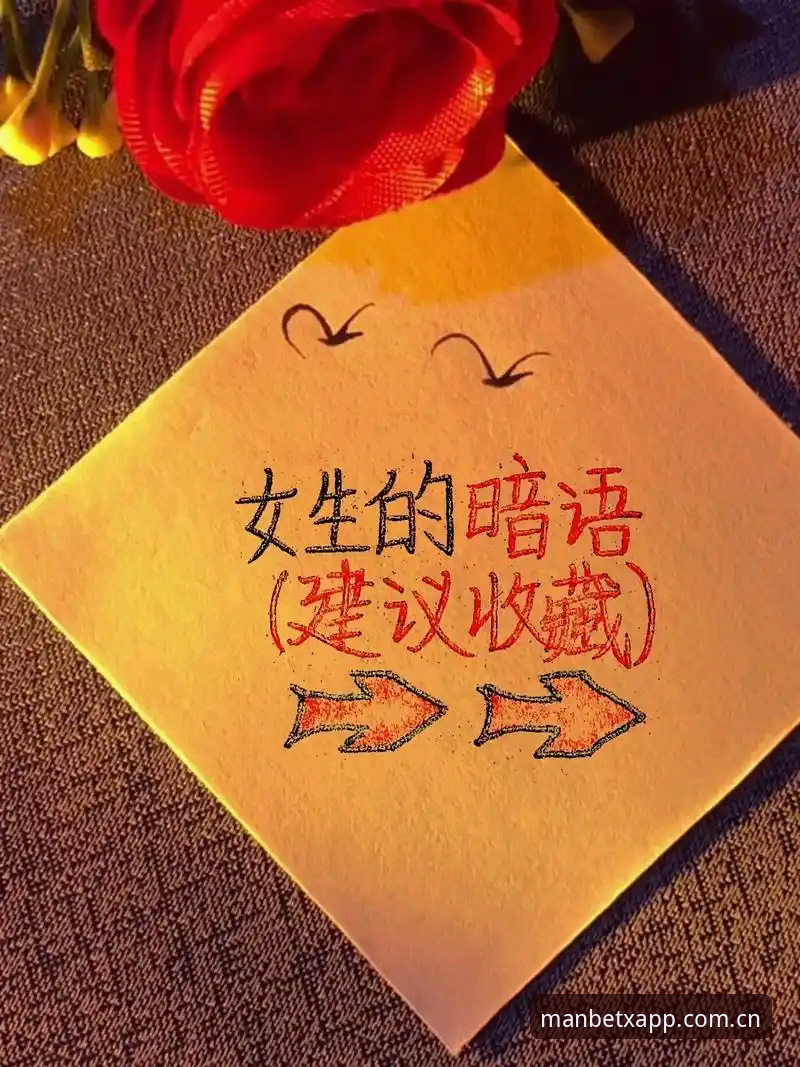 女生的暗语
(建议收藏)
manbetxapp.com.cn